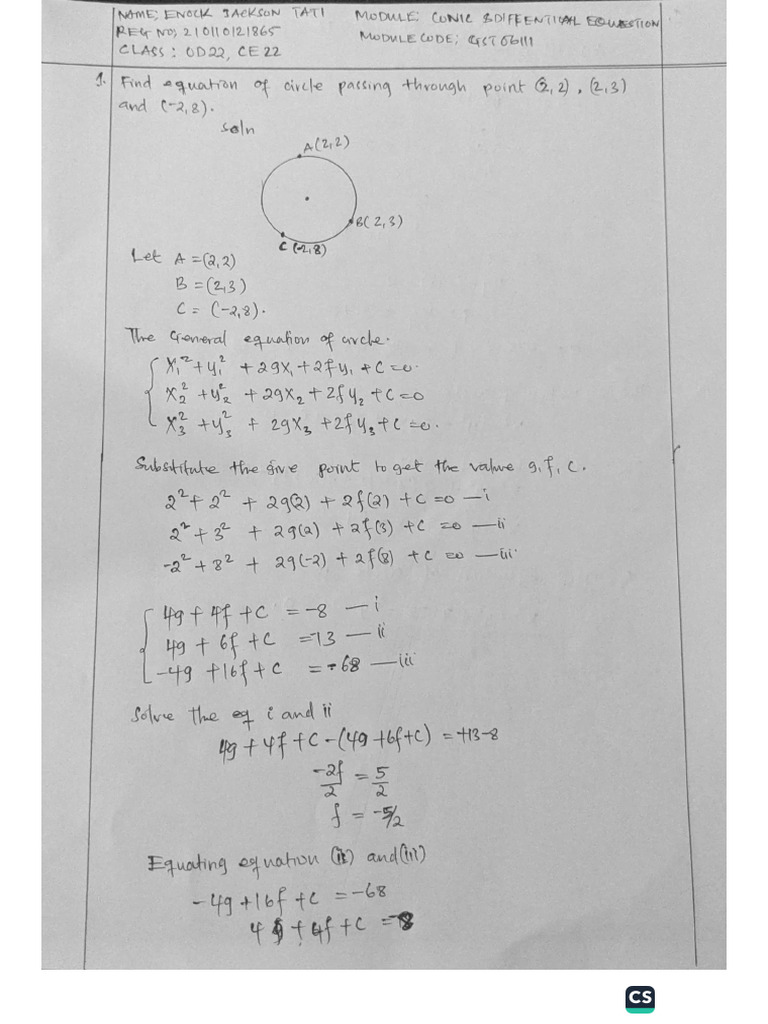 NAME; ENOCK JACKSON TATI MODULE; CONIC & DIFFENTICAL EQUESTION
REG NO; 210110121865 MODULE CODE; GST06111
CLASS: OD22, CE22
1. Find equation of circle passing through point (2,2), (2,3)
and (-2,8).
soln
A(2,2)
B(2,3)
C(-2,8)
Let A = (2,2)
B = (2,3)
C = (-2,8).
The General equation of circle.
x₁² + y₁² + 2gx₁ + 2fy₁ + c = 0.
x₂² + y₂² + 2gx₂ + 2fy₂ + c = 0
x₃² + y₃² + 2gx₃ + 2fy₃ + c = 0.
Substitute the give point to get the value g, f, c.
2² + 2² + 2g(2) + 2f(2) + c = 0 — i
2² + 3² + 2g(2) + 2f(3) + c = 0 — ii
-2² + 8² + 2g(-2) + 2f(8) + c = 0 — iii
4g + 4f + c = -8 — i
4g + 6f + c = -13 — ii
-4g + 16f + c = -68 — iii
Solve the eq i and ii
4g + 4f + c - (4g + 6f + c) = +13 - 8
-2f/2 = 5/2
f = -5/2
Equating equation (ii) and (iii)
-4g + 16f + c = -68
4g + 4f + c = -8
CS